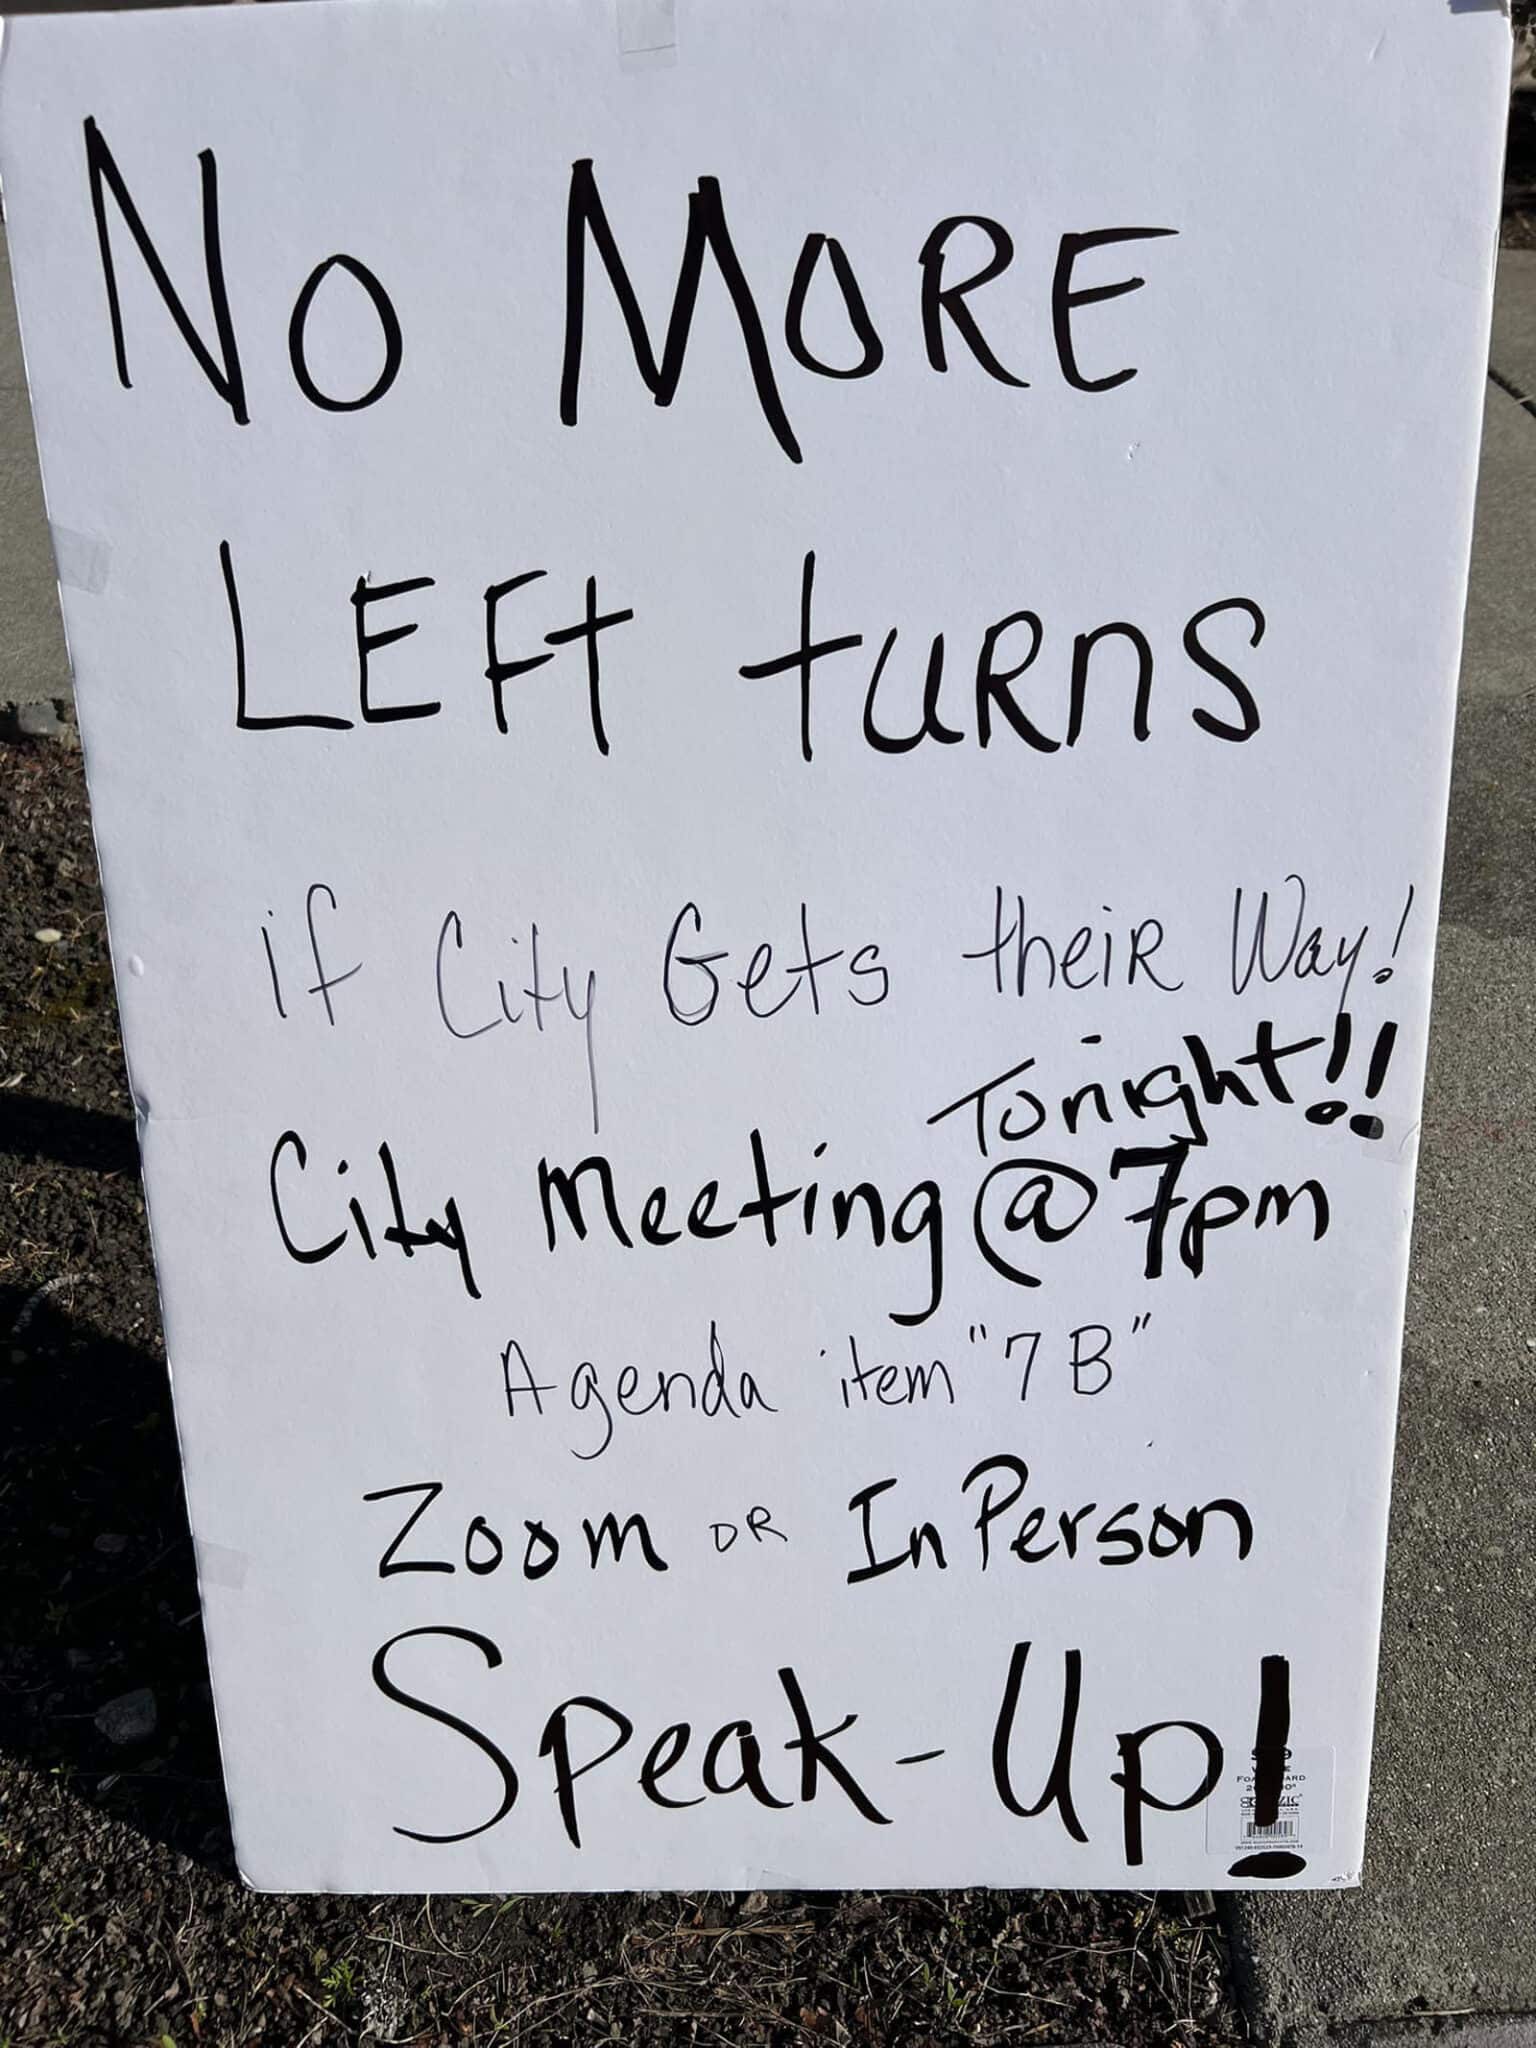 No MORE
LEFt tuRnS
if City Gets theiR Way!
Tonight!!
City Meeting @ 7pm
Agenda item "7 B"
Zoom OR In Person
Speak-Up!